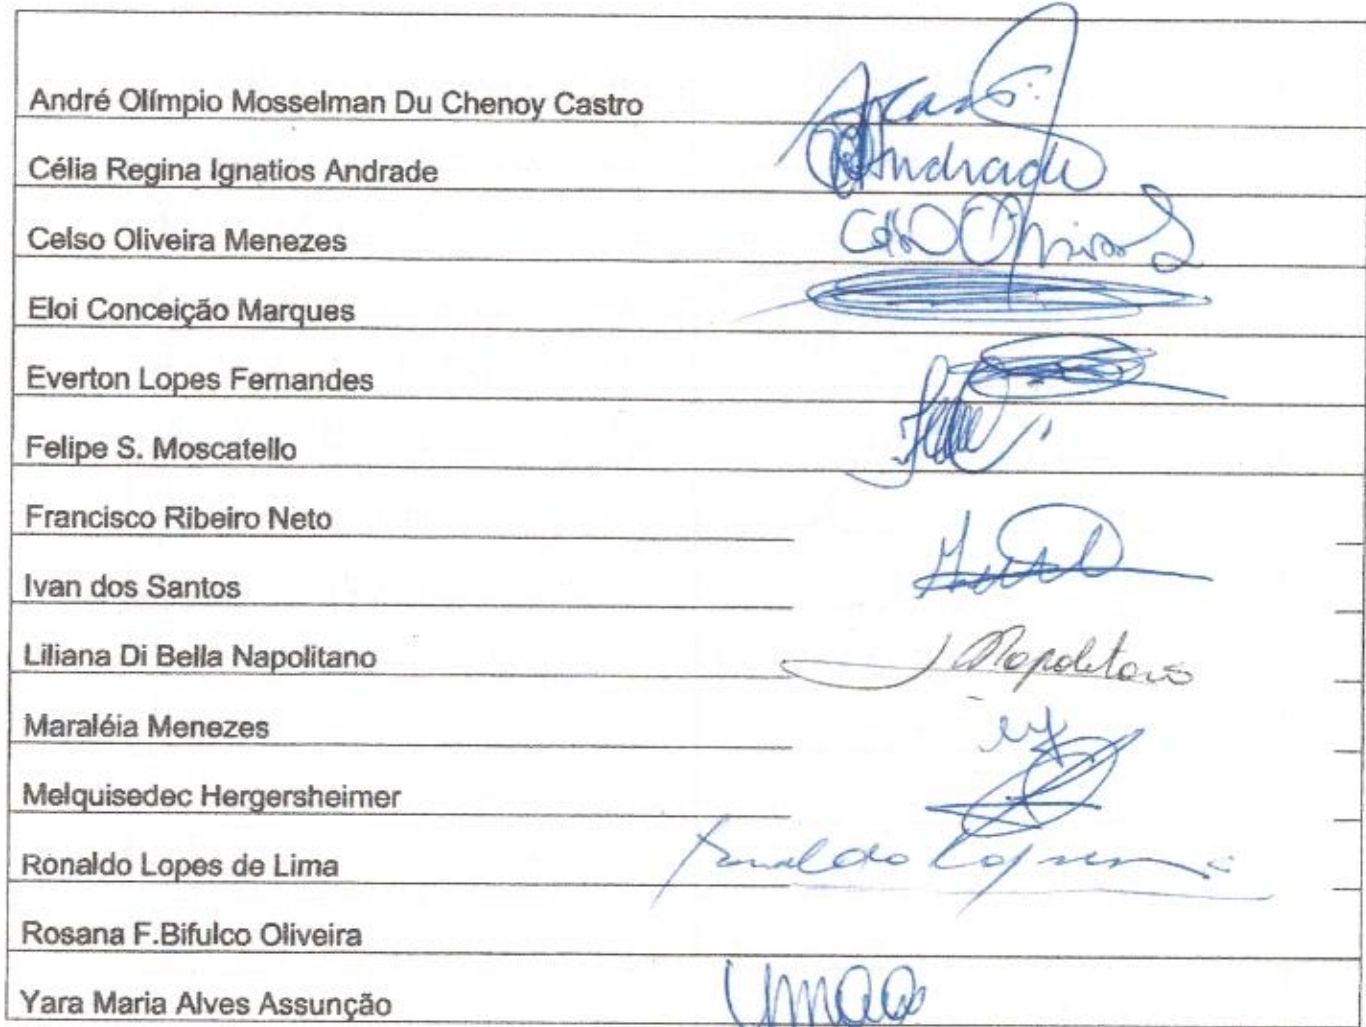 André Olímpio Mosselman Du Chenoy Castro
Célia Regina Ignatios Andrade Andrade
Celso Oliveira Menezes
Eloi Conceição Marques
Everton Lopes Fernandes
Felipe S. Moscatello
Francisco Ribeiro Neto
Ivan dos Santos
Liliana Di Bella Napolitano Napolitano
Maraléia Menezes
Melquisedec Hergersheimer
Ronaldo Lopes de Lima
Rosana F.Bifulco Oliveira
Yara Maria Alves Assunção